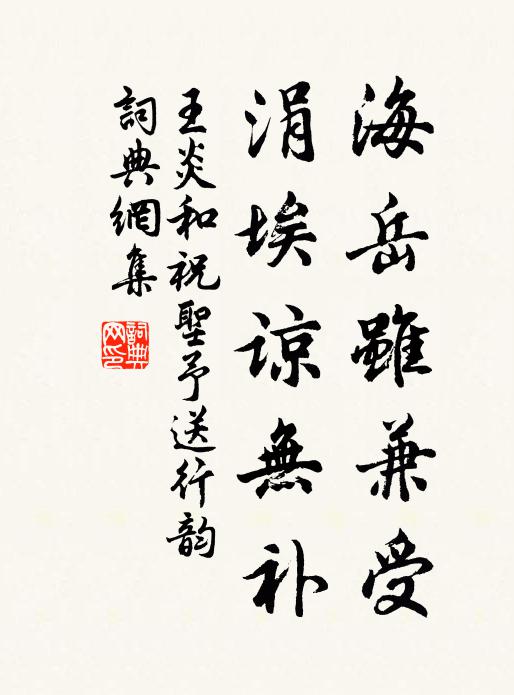 海岳雖兼受
涓埃谅無补
王炎和祝聖予送行韵
詞典網集
詞典网印